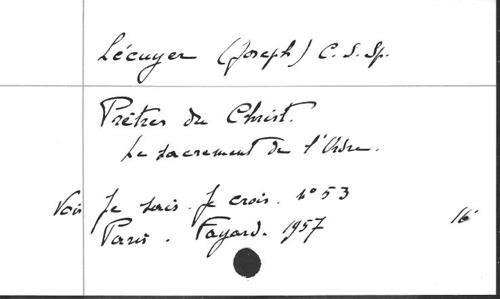 Lécuyer (Joseph) C.S.Sp.
Prêtres du Christ.
Le sacrement de l'Ordre.
Voir Je sais. Je crois. n° 53
Paris. Fayard. 1957 16